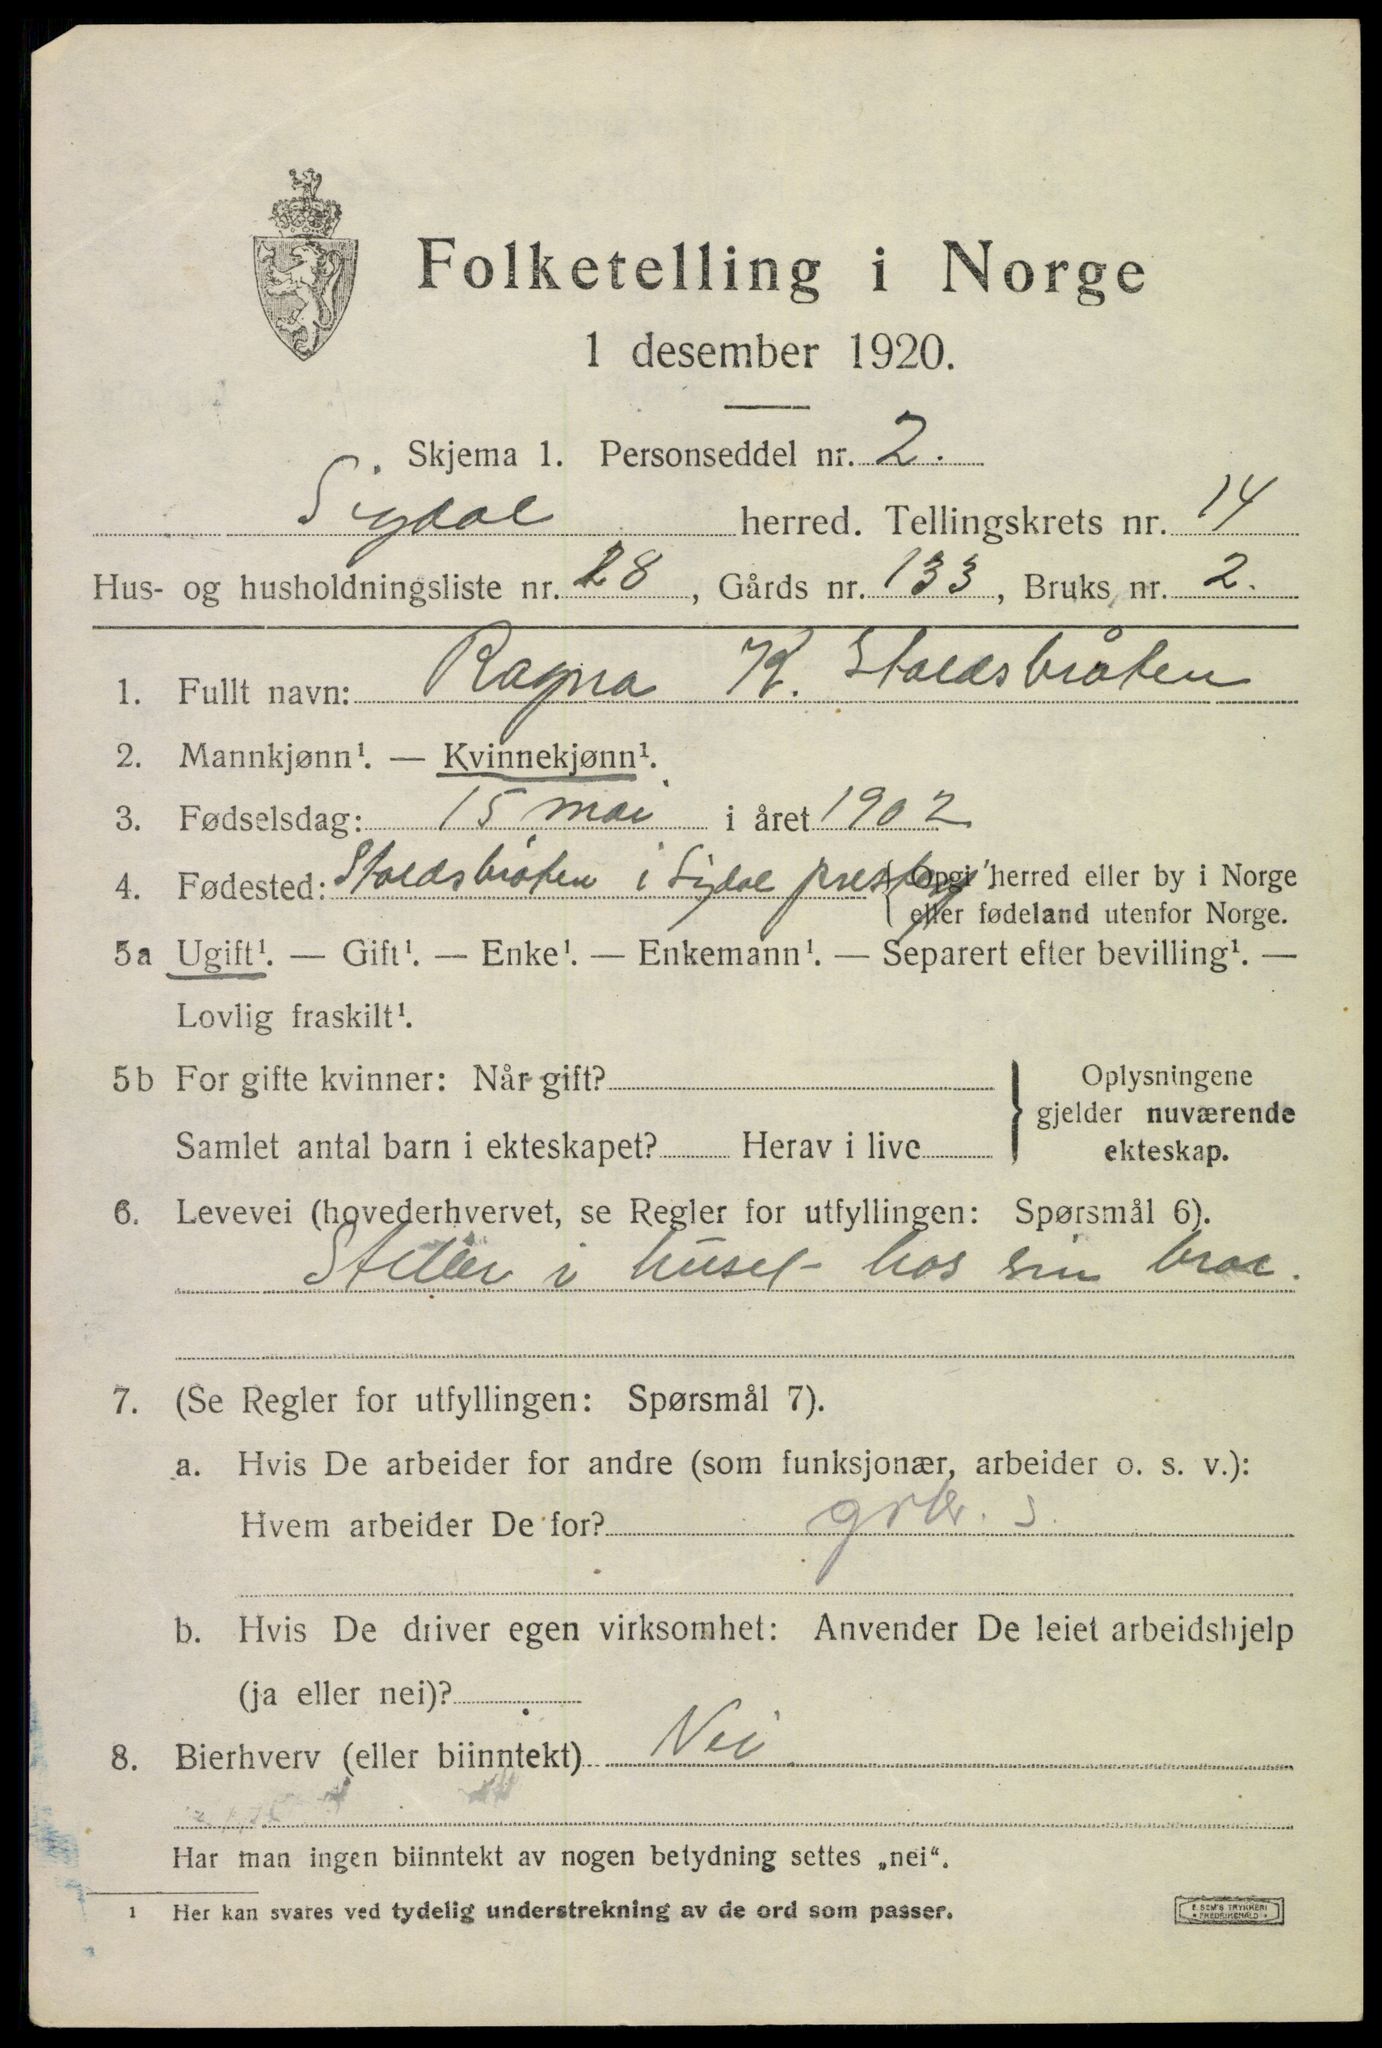 Folketelling i Norge
1 desember 1920.
Skjema 1. Personseddel nr. 2.
Sigdal herred. Tellingskrets nr. 14
Hus- og husholdningsliste nr. 28, Gårds nr. 133, Bruks nr. 2.
1. Fullt navn: Ragna K. Staldsbråten
2. Mannkjønn¹. — Kvinnekjønn¹.
3. Fødselsdag: 15 mai i året 1902
4. Fødested: Staldsbråten i Sigdal prestegj. { Opgi herred eller by i Norge
eller fødeland utenfor Norge.
5a Ugift¹. — Gift¹. — Enke¹. — Enkemann¹. — Separert efter bevilling¹. —
Lovlig fraskilt¹.
5b For gifte kvinner: Når gift? } Oplysningene
gjelder nuværende
Samlet antal barn i ekteskapet? Herav i live
ekteskap.
6. Levevei (hovederhvervet, se Regler for utfyllingen: Spørsmål 6).
Steller i huset hos sin bror.
7. (Se Regler for utfyllingen: Spørsmål 7).
a. Hvis De arbeider for andre (som funksjonær, arbeider o. s. v.):
Hvem arbeider De for? s
b. Hvis De driver egen virksomhet: Anvender De leiet arbeidshjelp
(ja eller nei)?
8. Bierhverv (eller biinntekt) Nei
Har man ingen biinntekt av nogen betydning settes „nei“.
¹ Her kan svares ved tydelig understrekning av de ord som passer.
E. SEM'S TRYKKERI
FREDRIKSHALD